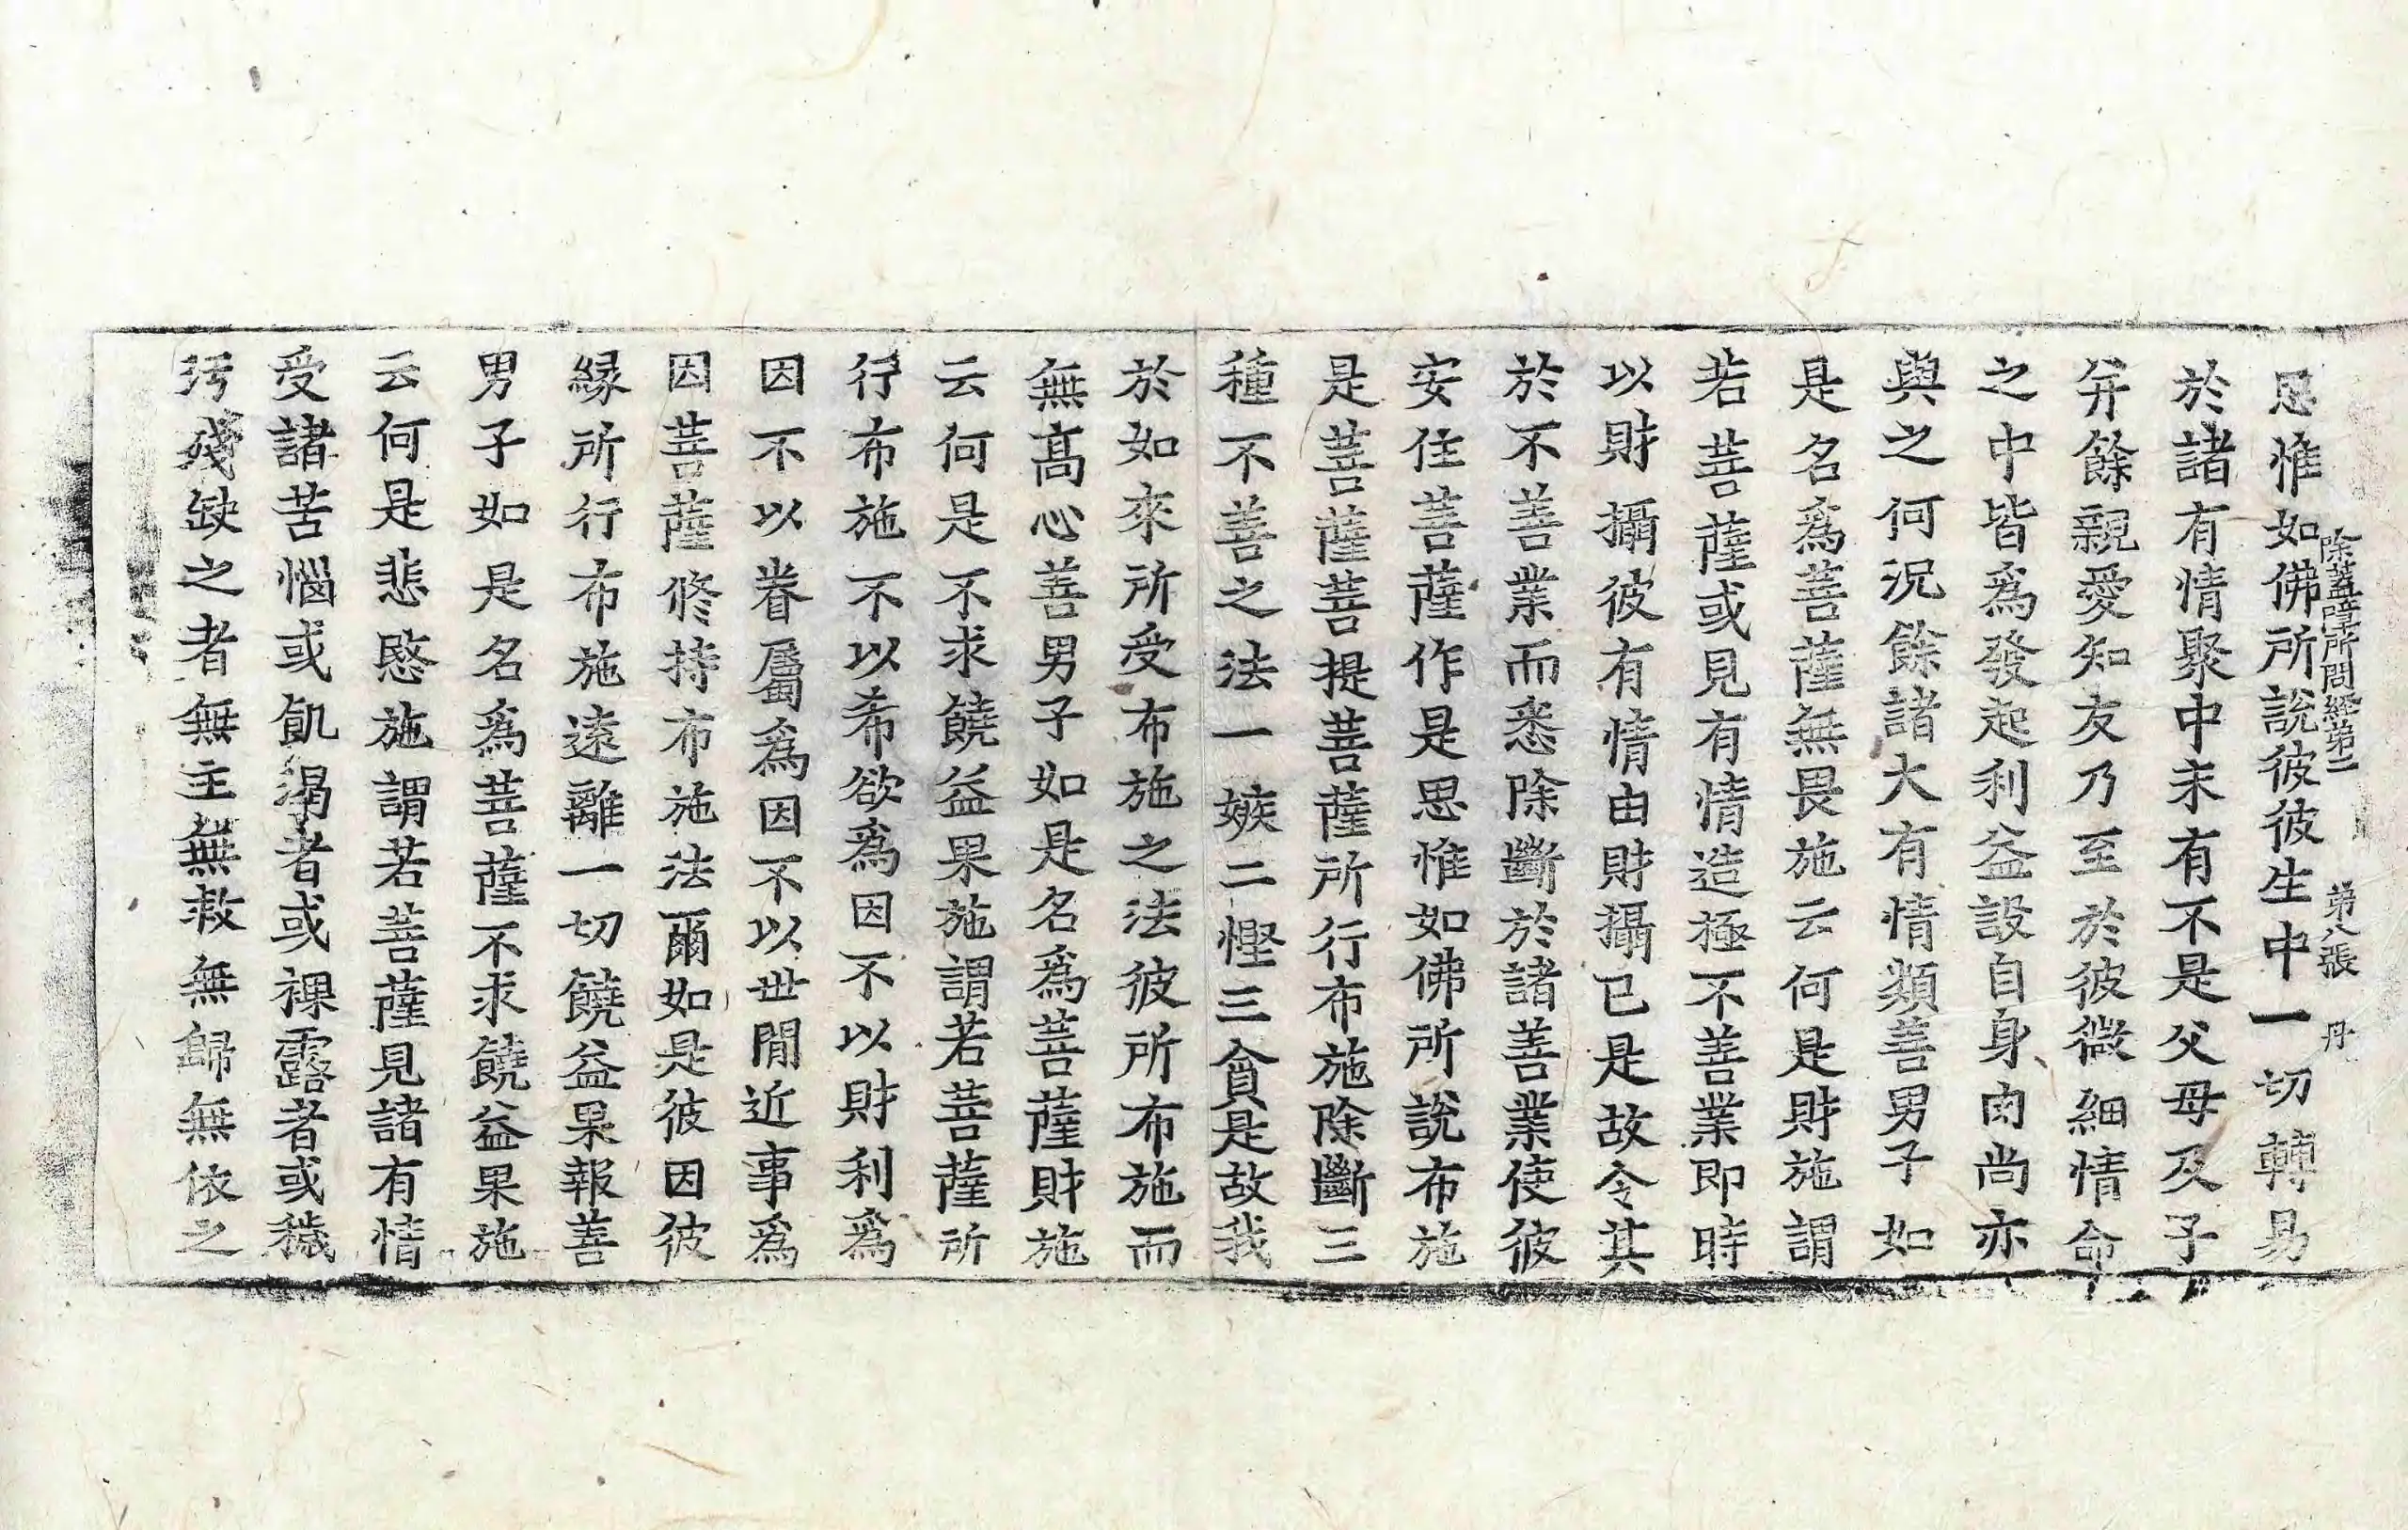 除蓋障所問經第二 第八張 丹
思惟如佛所說彼彼生中一切轉易
於諸有情聚中未有不是父母及子
并餘親愛知友乃至於彼微細情命
之中皆爲發起利益設自身肉尚亦
與之何況餘諸大有情類善男子如
是名爲菩薩無畏施云何是財施謂
若菩薩或見有情造極不善業即時
以財攝彼有情由財攝已是故令其
於不善業而悉除斷於諸善業使彼
安住菩薩作是思惟如佛所說布施
是菩薩菩提菩薩所行布施除斷三
種不善之法一嫉二慳三貪是故我
於如來所受布施之法彼所布施而
無髙心善男子如是名爲菩薩財施
云何是不求饒益果施謂若菩薩所
行布施不以希欲爲因不以財利爲
因不以眷屬爲因不以世間近事爲
因菩薩修持布施法爾如是彼因彼
緣所行布施遠離一切饒益果報善
男子如是名爲菩薩不求饒益果施
云何是悲愍施謂若菩薩見諸有情
受諸苦惱或飢渴者或裸露者或穢
污殘缺之者無主無救無歸無依之